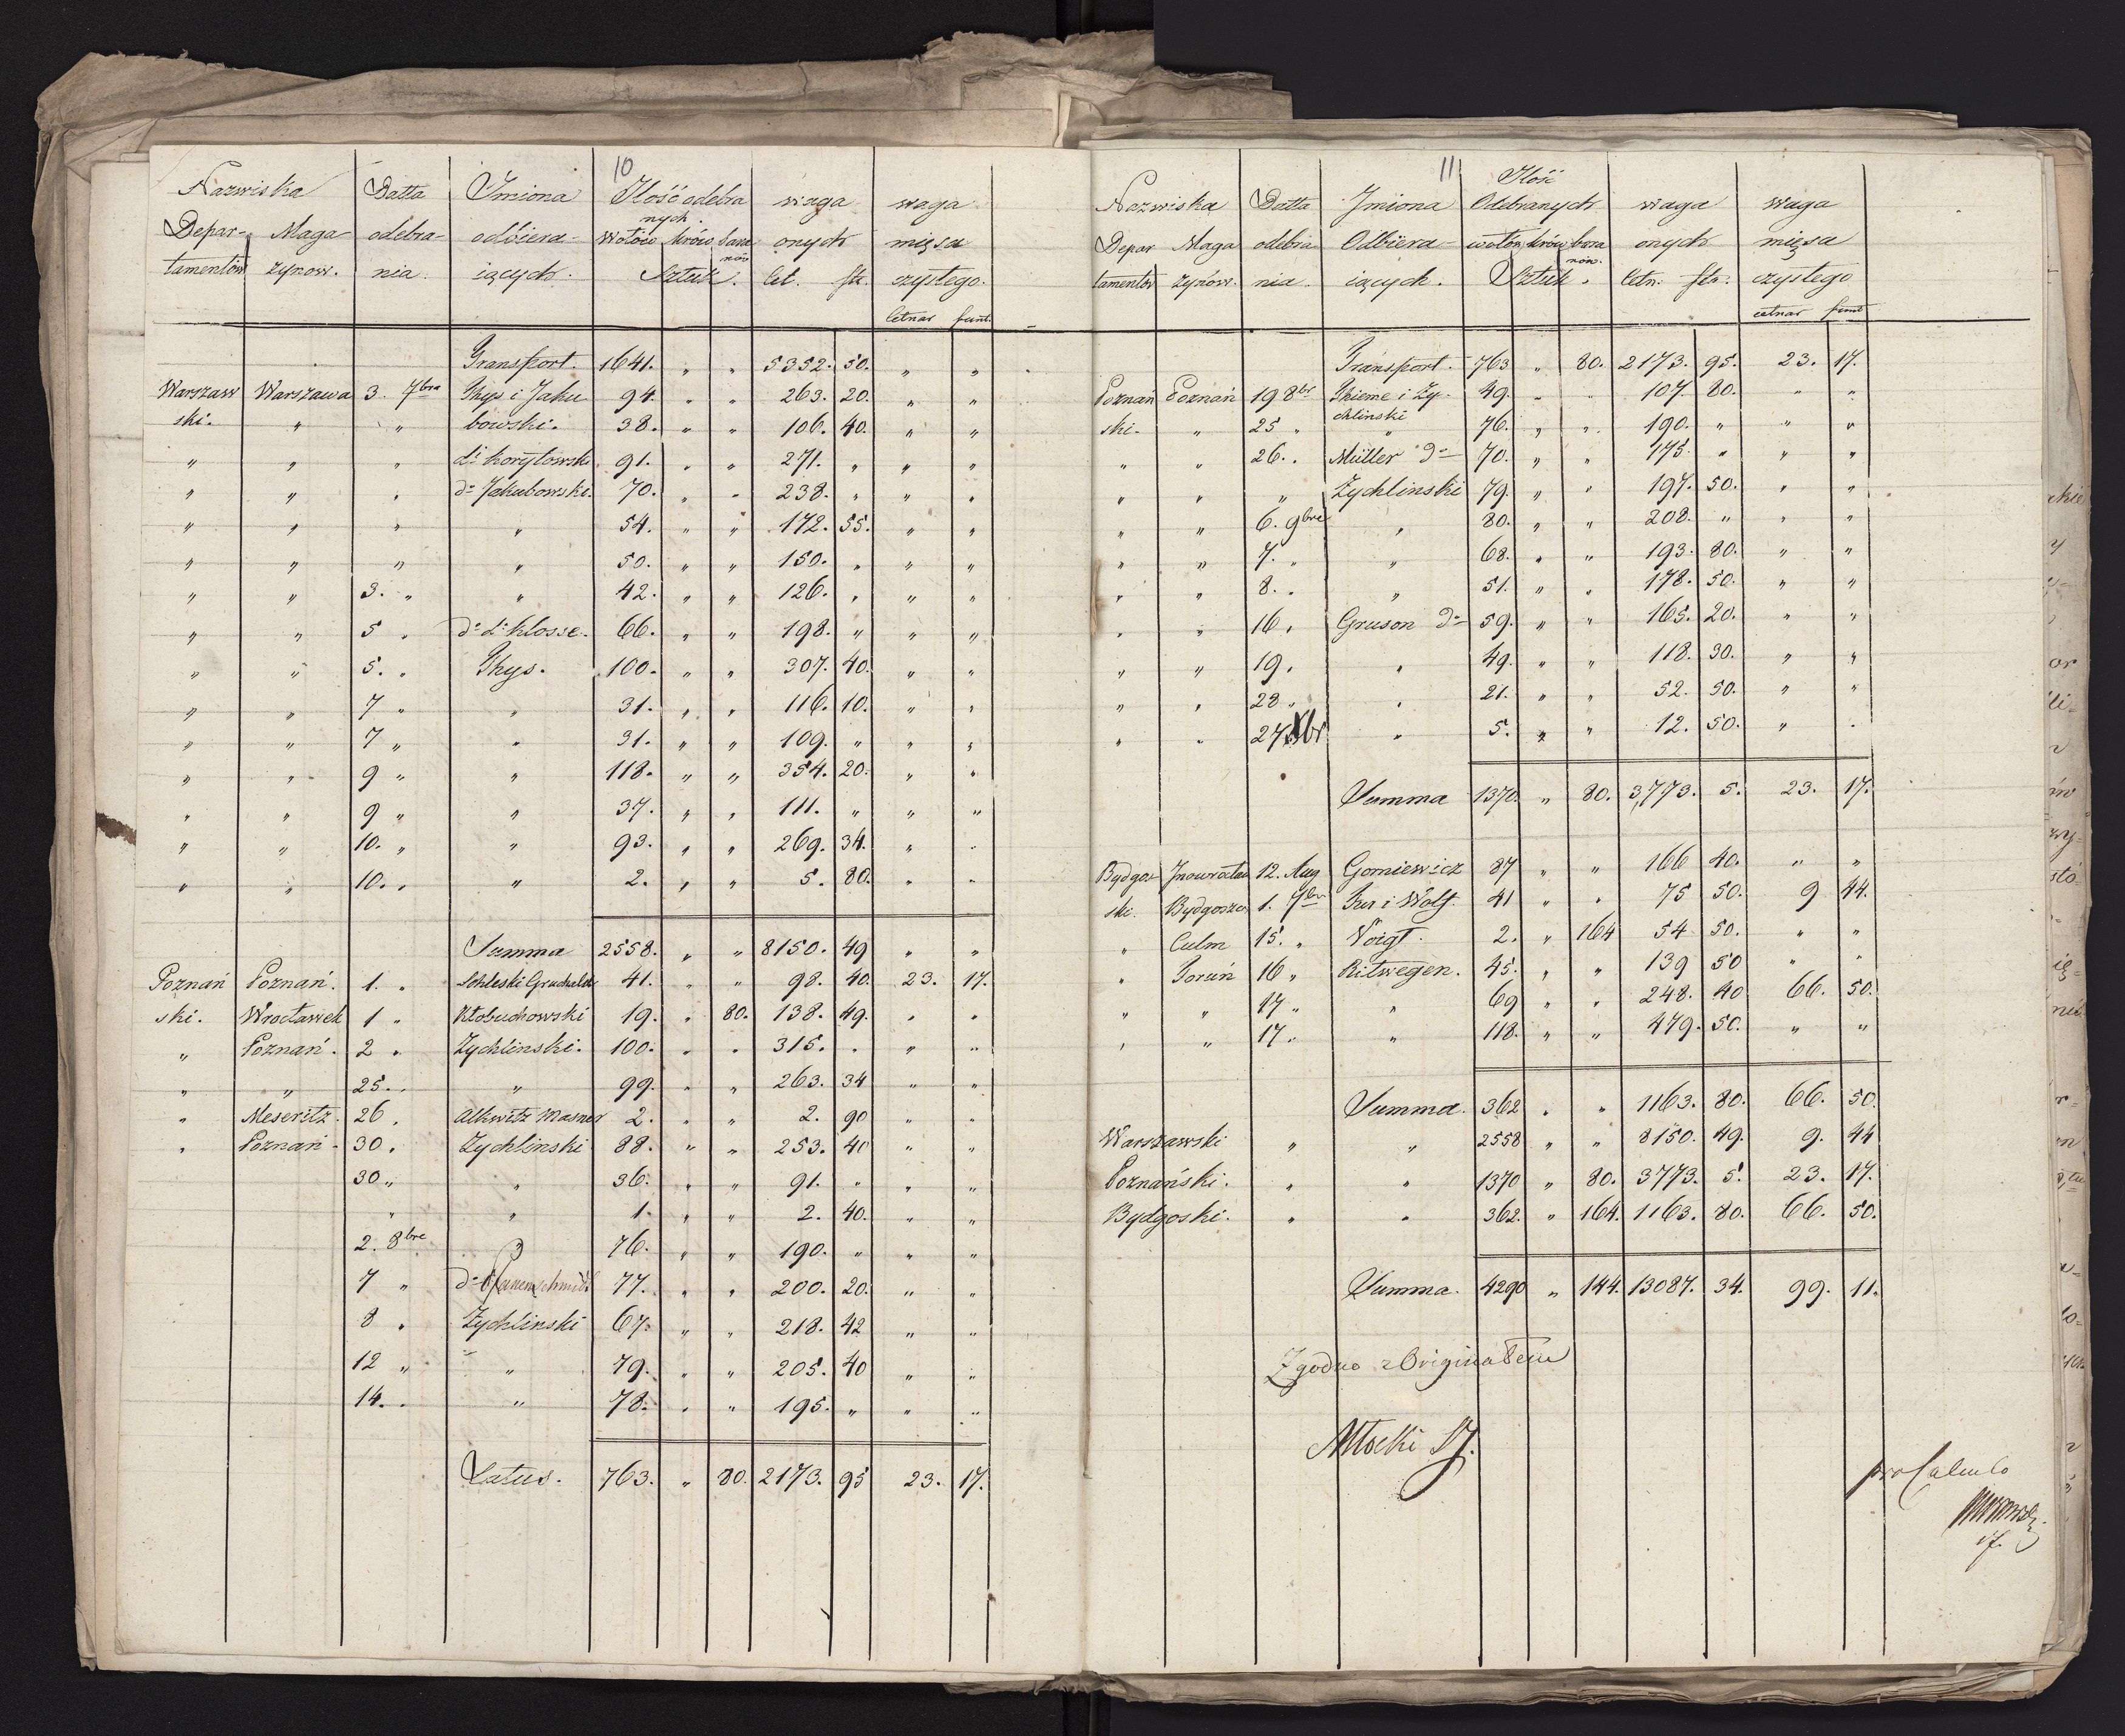 10
Nazwiska Datta Imiona Ilość odebra waga waga
nych
Depar- Maga- odebra- odbiera- wołów krów bara onych mięsa
nów
tamentów zynow. nia. iących. Sztuk. Cet. ft. czystego.
Cetnar funt.
Transport. 1641. " " 5352. 50. " "
Warszaw Warszawa 3. 7bra Thys i Jaku 94. " " 263. 20. " "
ski. " " bowski. 38. " " 106. 40. " "
" " " Korytowski 91. " " 271. " " "
" " " do Jakubowski. 70. " " 238. " " "
" " " " 54. " " 172. 55. " "
" " " " 50. " " 150. " " "
" " 3. " " 42. " " 126. " " "
" " 5 " Klosse. 66. " " 198. " " "
" " 5. " Thys. 100. " " 307. 40. " "
" " 7 " " 31. " " 116. 10. " "
" " 7 " " 31. " " 109. " " "
" " 9 " " 118. " " 354. 20. " "
" " 9 " " 37. " " 111. " " "
" " 10. " " 93. " " 269. 34. " "
" " 10. " " 2. " " 5. 80. " "
Summa 2558. " " 8150. 49 " "
Poznań Poznań. 1. " 41. " " 98. 40. 23. 17.
ski. Wrocławek 1 " Kłobuchowski 19. " 80. 138. 49. " "
" Poznań. 2 " Zychlinski. 100. " " 315. " " "
" " 25. " " 99. " " 263. 34 " "
" Meseritz. 26. Masner 2. " " 2. 90 " "
" Poznań 30. Zychlinski 88. " " 253. 40 " "
30 " " 36. " " 91. " " "
" " 1. " " 2. 40. " "
2. 8bre " 76. " " 190. " " "
7 " 77. " " 200. 20. " "
8 " Zychlinski 67. " " 218. 42 " "
12 " " 79. " " 205. 40 " "
14. " " 78. " " 195. " " "
Latus. 763. " 80. 2173. 95 23. 17.
11
Ilość
Nazwiska Datta Imiona Odebranych waga waga
Depar Maga odebra Odbiera- wołów krów bara onych mięsa
nów.
tamentów zynów. nia. iących. Sztuk. Cetn. ftn. czystego
cetnar funt
Transport. 763 " 80. 2173. 95. 23. 17.
Poznań Poznań 19 8br Thieme i Zy- 49. " " 107. 80. " "
chlinski
ski. " 25 " " 76. " " 190. " " "
" " 26. " Müller do 70. " " 175. " " "
" " " Zychlinski 79. " " 197. 50. " "
" " 6. 9bre " 80. " " 208. " " "
" " 7. " " 68. " " 193. 80. " "
" " 8. " " 51. " " 178. 50. " "
" " 16. Gruson do 59. " " 165. 20. " "
" " 19. " 49. " " 118. 30. " "
" " 28 " " 21. " " 52. 50. " "
" " 27 Xbr " 5. " " 12. 50. " "
Summa 1370. " 80. 3,773. 5. 23. 17.
Bydgos- Inowrocław 12. Aug Gomiewicz 87 " " 166 40. " "
ski. Bydgoszcz 1. 7br i Wolf. 41 " " 75 50. 9 44.
" Culm 15. " Voigt. 2. " 164 54 50. " "
" Toruń 16 " Ritwegen. 45. " " 139 50 " "
" " 17 " " 69 " " 248. 40 66. 50.
" " 17. " " 118. " " 479. 50. " "
Summa. 362 " " 1163. 80. 66. 50.
Warszawski " " 2558 " " 8150. 49. 9. 44
Poznański. " " 1370 " 80. 3773. 5. 23. 17.
Bydgoski. " " 362. " 164. 1163. 80. 66. 50.
Summa. 4290 " 144. 13087. 34. 99. 11.
Zgodno z Originałem
Młocki
pro Calculo